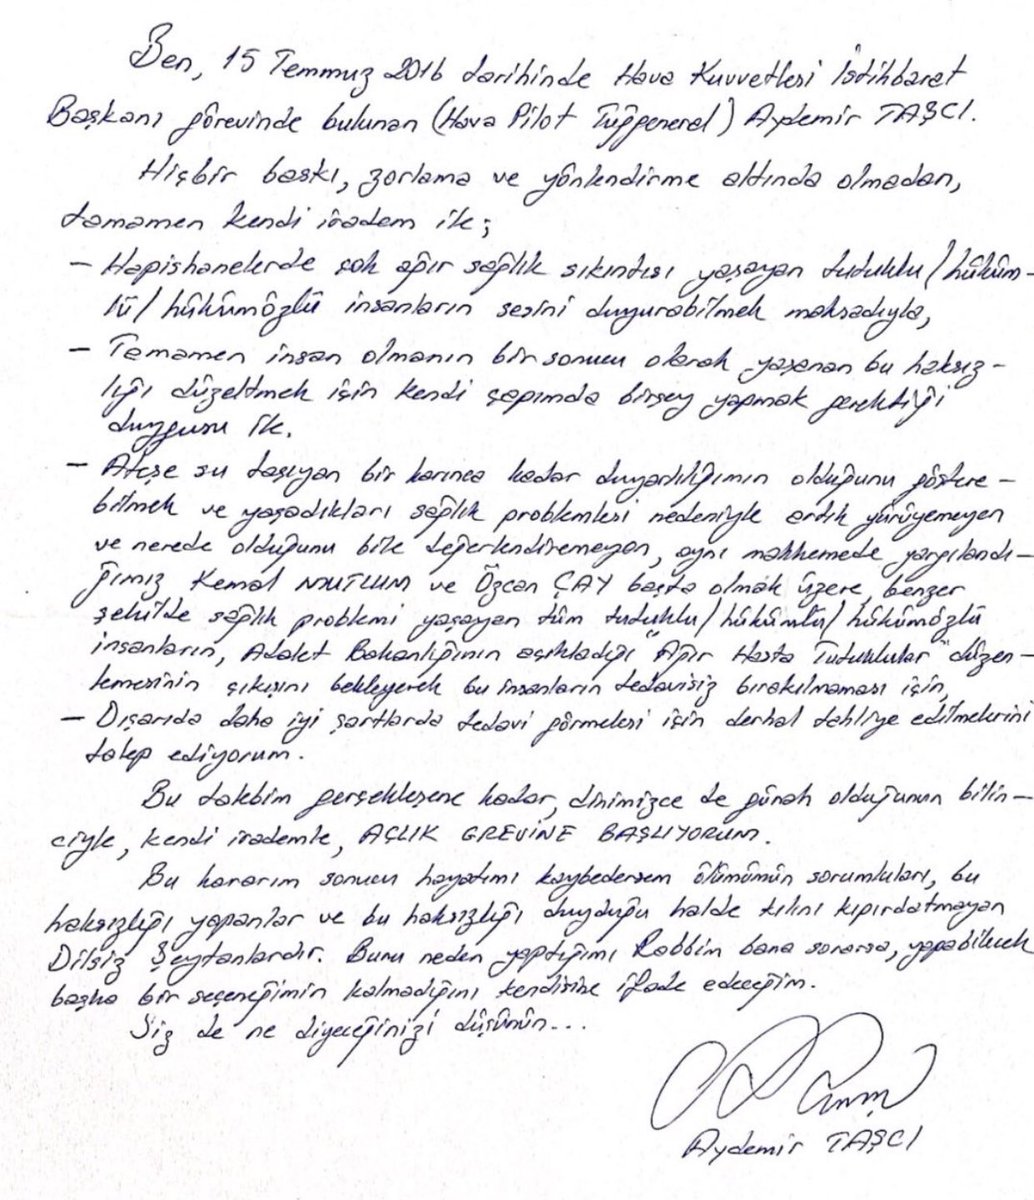 Ben, 15 Temmuz 2016 tarihinde Hava Kuvvetleri İstihbarat
Başkanı görevinde bulunan (Hava Pilot Tuğgeneral) Aydemir TAŞCI.
Hiçbir baskı, zorlama ve yönlendirme altında olmadan,
tamamen kendi iradem ile;
- Hapishanelerde çok ağır sağlık sıkıntısı yaşayan tutuklu/hüküm-
lü/hükümözlü insanların sesini duyurabilmek maksadıyla,
- Tamamen insan olmanın bir sonucu olarak yaşanan bu haksız-
lığı düzeltmek için kendi çapımda birşey yapmak gerektiği
duygusu ile.
- Ateşe su taşıyan bir karınca kadar duyarlılığımın olduğunu göstere-
bilmek ve yaşadıkları sağlık problemleri nedeniyle artık yürüyemeyen
ve nerede olduğunu bile değerlendiremeyen, aynı mahkemede yargılandı-
ğımız Kemal MUTLUM ve Özcan ÇAY başta olmak üzere, benzer
şekilde sağlık problemi yaşayan tüm tutuklu/hükümlü/hükümözlü
insanların, Adalet Bakanlığının açıkladığı "Ağır Hasta Tutuklular" düzen-
lemesinin çıkışını bekleyerek bu insanların tedavisiz bırakılmaması için,
- Dışarıda daha iyi şartlarda tedavi görmeleri için derhal tahliye edilmelerini
talep ediyorum.
Bu talebim gerçekleşene kadar, dinimizce de günah olduğunun bilin-
ciyle, kendi irademle, AÇLIK GREVİNE BAŞLIYORUM.
Bu kararım sonucu hayatımı kaybedersem ölümümün sorumluları, bu
haksızlığı yapanlar ve bu haksızlığı duyduğu halde kılını kıpırdatmayan
Dilsiz Şeytanlardır. Bunu neden yaptığımı Rabbim bana sorarsa, yapabilecek
başka bir seçeneğimin kalmadığını kendisine ifade edeceğim.
Siz de ne diyeceğinizi düşünün...
Aydemir TAŞCI